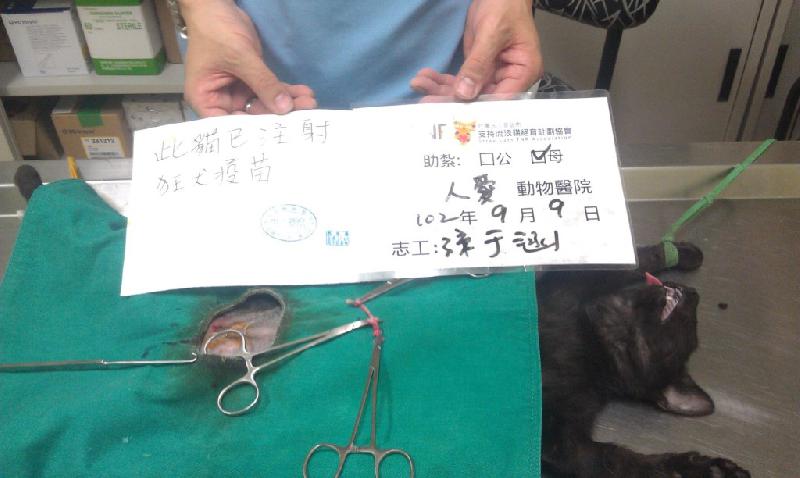 此貓已注射
狂犬疫苗
支持流浪貓絕育計劃協會
助紮: 口公 口母
人愛 動物醫院
102年 9月 9日
志工:孫于涵
STERILE